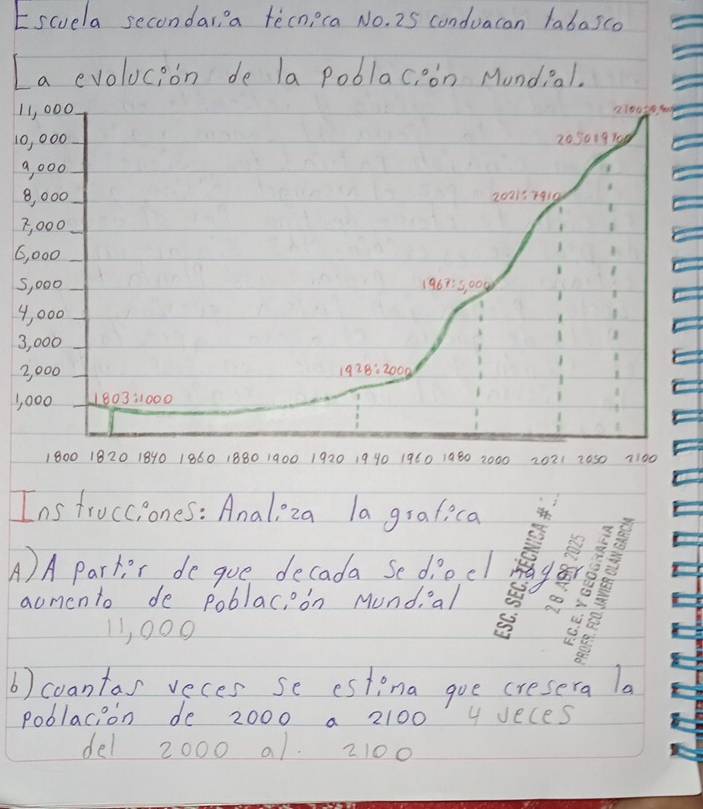 Escuela secundaria técnica No. 25 cunduacan tabasco
La evolución de la Población Mundial.
11,000
10,000
9,000
8,000
7,000
6,000
5,000
4,000
3,000
2,000
1,000
1803:1000
1928:2000
1967:5,000
2021:7910
2050:9700
1800 1820 1840 1860 1880 1900 1920 1940 1960 1980 2000 2021 2050 2100
Instrucciones: Analiza la grafica
A) A partir de que decada se dio el
aumento de Población Mundial
11,000
ESC. SEC. TÉCNICA #
28 ABR 2025
F.C.E. Y GEOGRAFIA
PROFR. FCO. JAVIER OLAN GARCIA
b) cuantas veces se estima que cresera la
población de 2000 a 2100 4 veces
del 2000 al. 2100